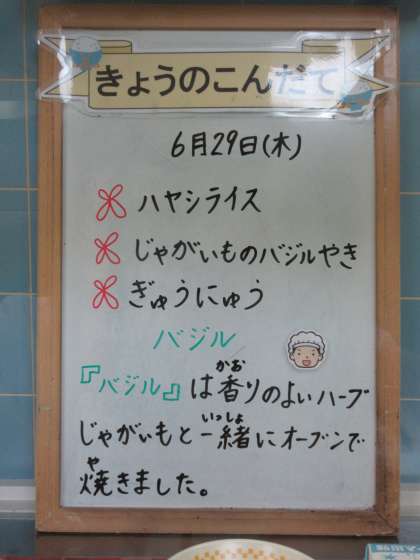 きょうのこんだて
6月29日(木)
ハヤシライス
じゃがいものバジルやき
ぎゅうにゅう
バジル
『バジル』は香りのよいハーブ
かお
じゃがいもと一緒にオーブンで
いっしょ
焼きました。
や